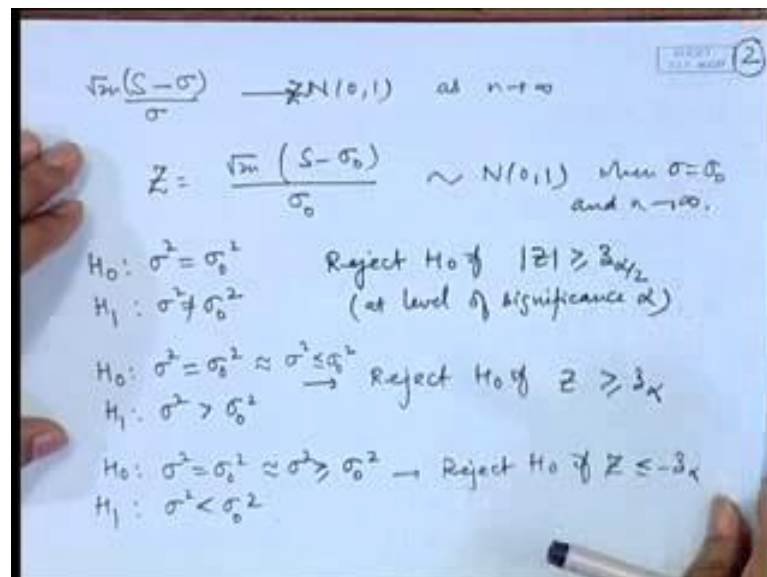 2
√2n(S-σ)/σ → Z N(0,1) as n→∞
Z = √2n (S-σ₀)/σ₀ ~ N(0,1) when σ=σ₀
and n→∞.
H₀: σ²=σ₀² Reject H₀ if |Z| ≥ z_{α/2}
H₁: σ²≠σ₀² (at level of significance α)
H₀: σ²=σ₀² ≈ σ²≤σ₀² → Reject H₀ if Z ≥ z_α
H₁: σ²>σ₀²
H₀: σ²=σ₀² ≈ σ²≥σ₀² → Reject H₀ if Z ≤ -z_α
H₁: σ²<σ₀²